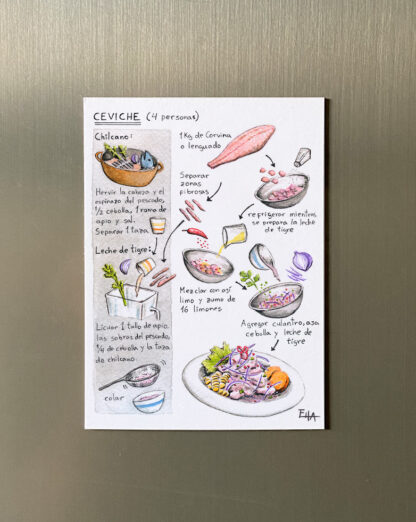 CEVICHE (4 personas)
Chilcano:
Hervir la cabeza y el
espinazo del pescado,
1/2 cebolla, 1 rama de
apio y sal.
Separar 1 taza
Leche de tigre:
Licuar 1 tallo de apio,
las sobras del pescado,
1/4 de cebolla y la taza
de chilcano.
colar
1 Kg de Corvina
o lenguado
Separar
zonas
fibrosas
refrigerar mientras
se prepara la leche
de tigre
Mezclar con ají
limo y zumo de
16 limones
Agregar culantro,
cebolla y leche de
tigre